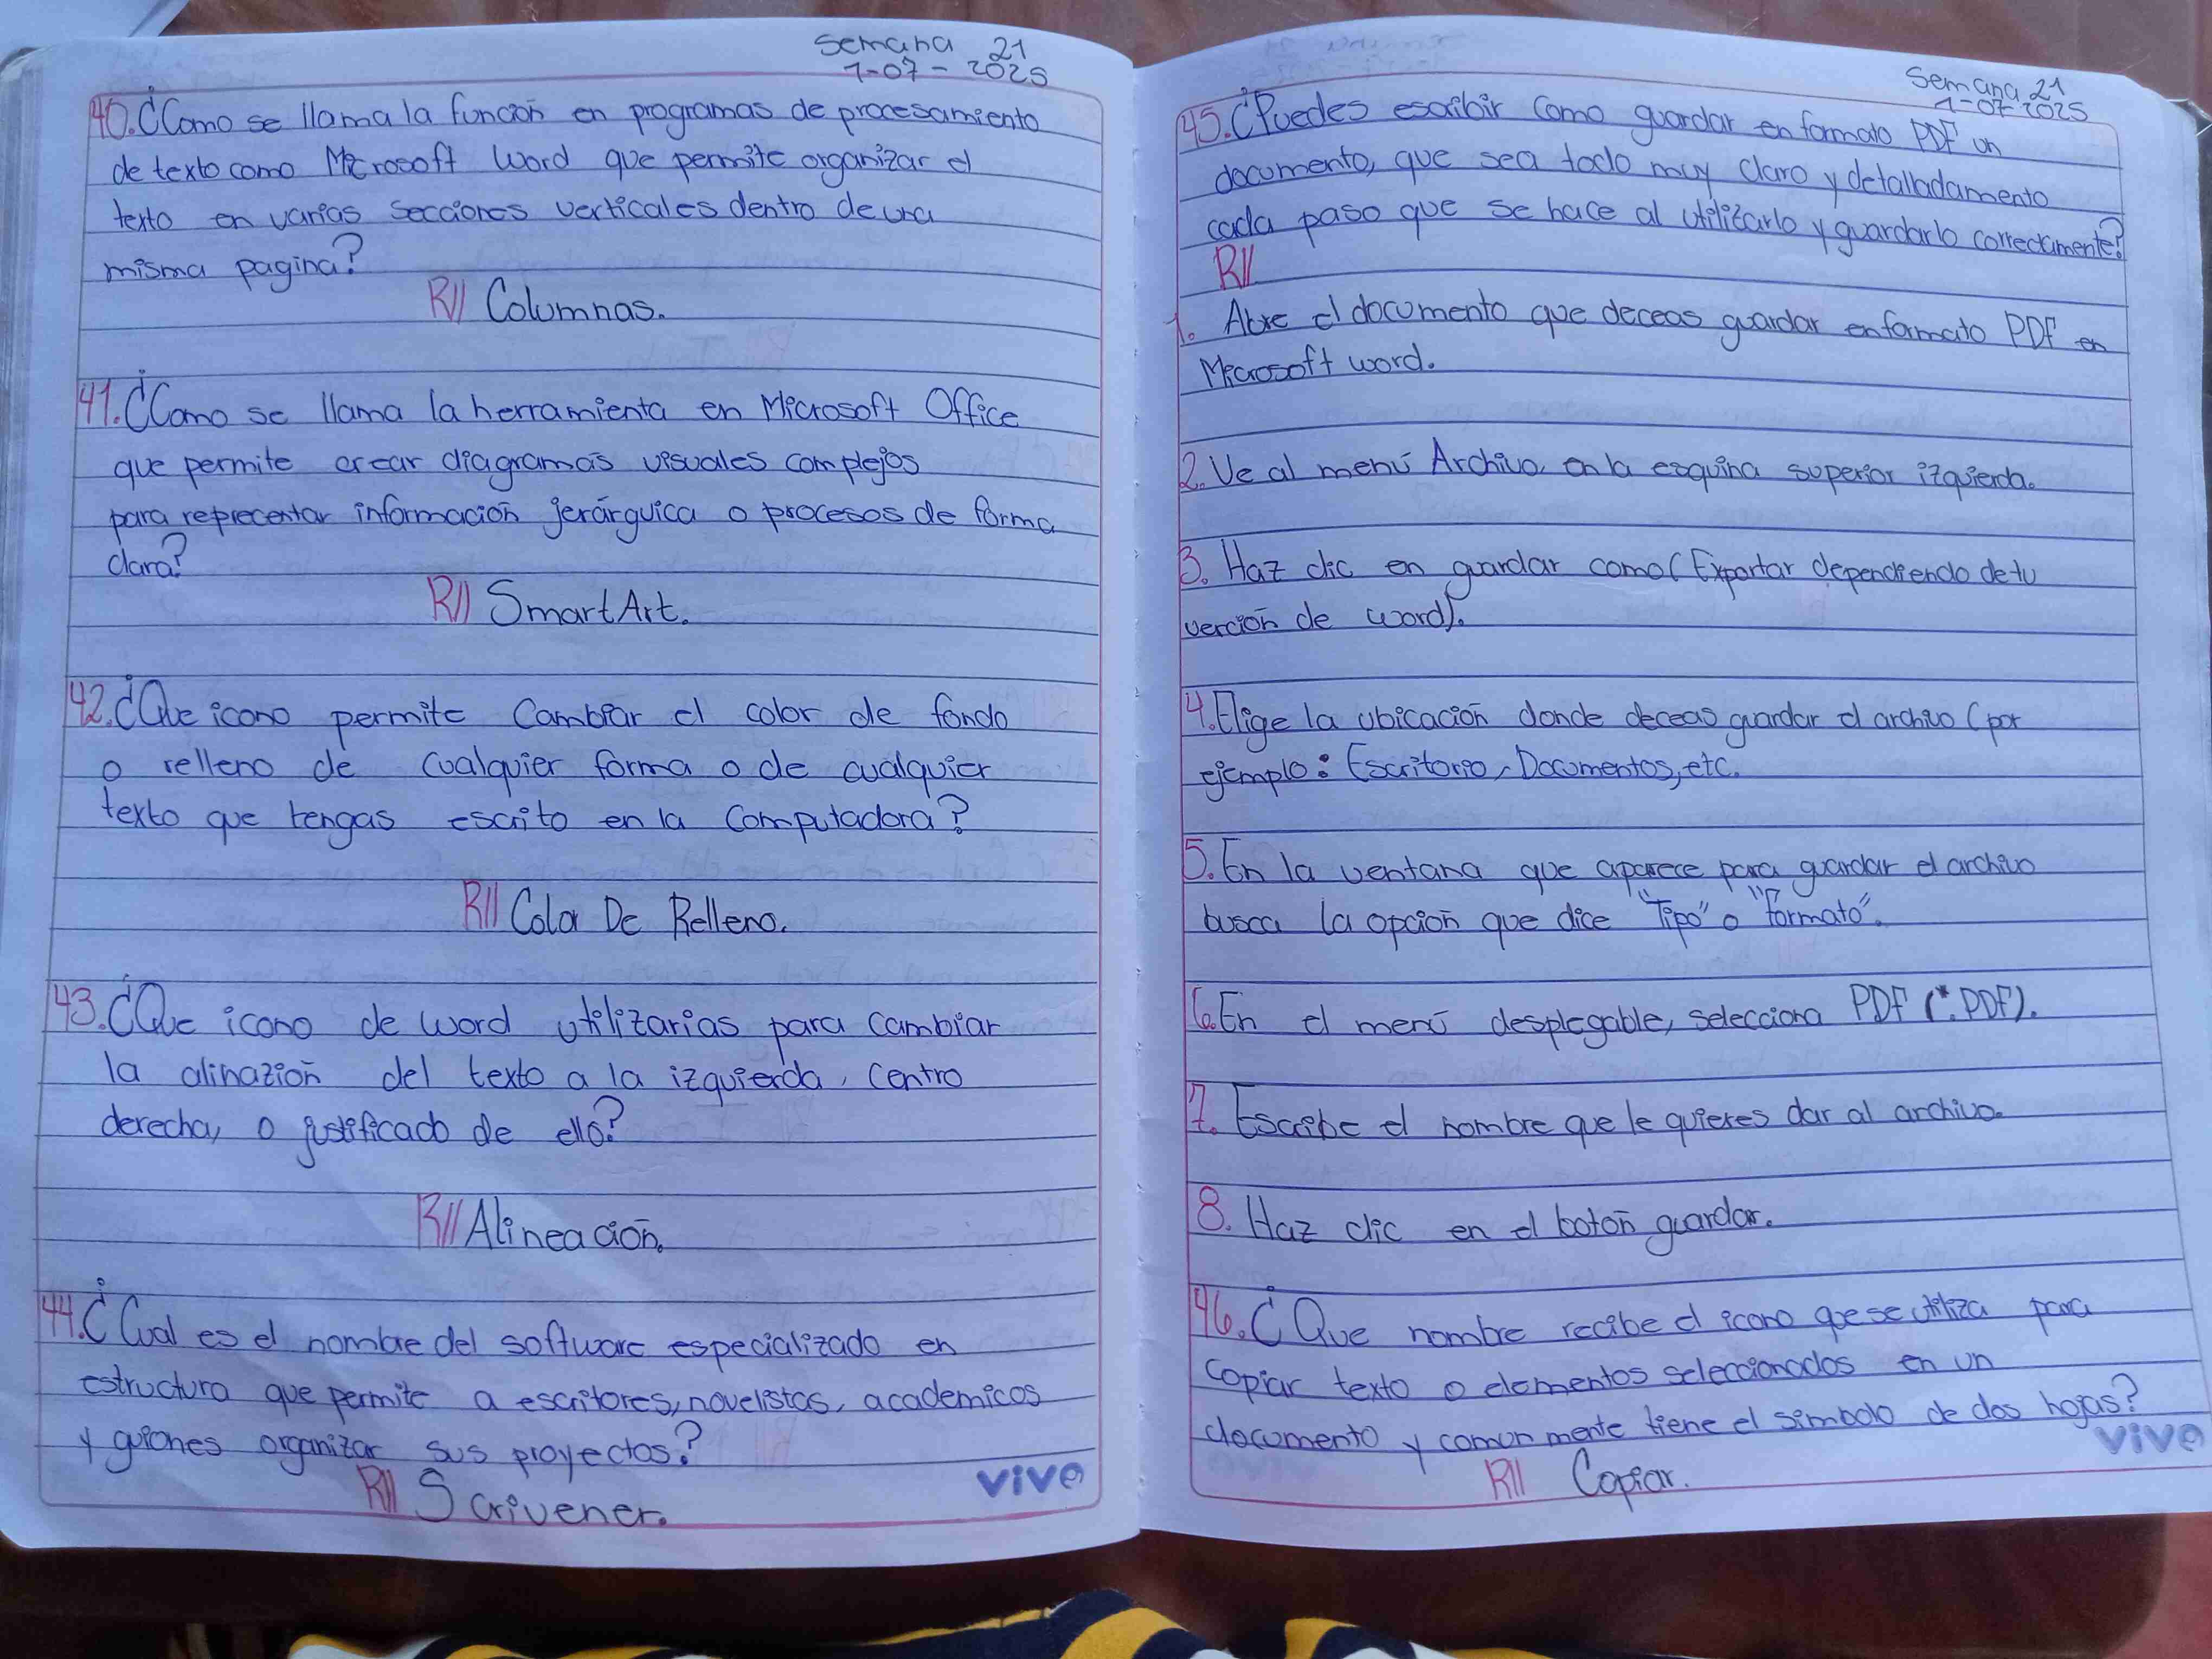 Semana 21
1-07-2025
40. ¿Como se llama la función en programas de procesamiento
de texto como Microsoft Word que permite organizar el
texto en varias secciones verticales dentro de una
misma pagina?
R// Columnas.
41. ¿Como se llama la herramienta en Microsoft Office
que permite crear diagramas visuales complejos
para reprecentar información jerárquica o procesos de forma
clara?
R// SmartArt.
42. ¿Que icono permite Cambiar el color de fondo
o relleno de cualquier forma o de cualquier
texto que tengas escrito en la Computadora?
R// Color De Relleno.
43. ¿Que icono de word utilizarias para cambiar
la alinazión del texto a la izquierda, centro
derecha, o justificado de ello?
R// Alineación.
44. ¿Cual es el nombre del software especializado en
estructura que permite a escritores, novelistas, academicos
y guiones organizar sus proyectos?
R// Scrivener.
vivo
Semana 21
1-07-2025
45. ¿Puedes escribir como guardar en formato PDF un
documento, que sea todo muy claro y detalladamento
cada paso que se hace al utilizarlo y guardarlo correctamente?
R//
1. Abre el documento que deceas guardar en formato PDF en
Microsoft word.
2. Ve al menú Archivo en la esquina superior izquierda.
3. Haz clic en guardar como (Exportar dependiendo de tu
verción de word).
4. Elige la ubicación donde deceas guardar el archivo (por
ejemplo: Escritorio, Documentos, etc.
5. En la ventana que aparece para guardar el archivo
busca la opción que dice "Tipo" o "formato".
6. En el menú desplegable, selecciona PDF (*.PDF).
7. Escribe el nombre que le quieres dar al archivo.
8. Haz clic en el botón guardar.
46. ¿Que nombre recibe el icono que se utiliza para
copiar texto o elementos seleccionados en un
documento y comun mente tiene el simbolo de dos hojas?
vivo
R// Copiar.